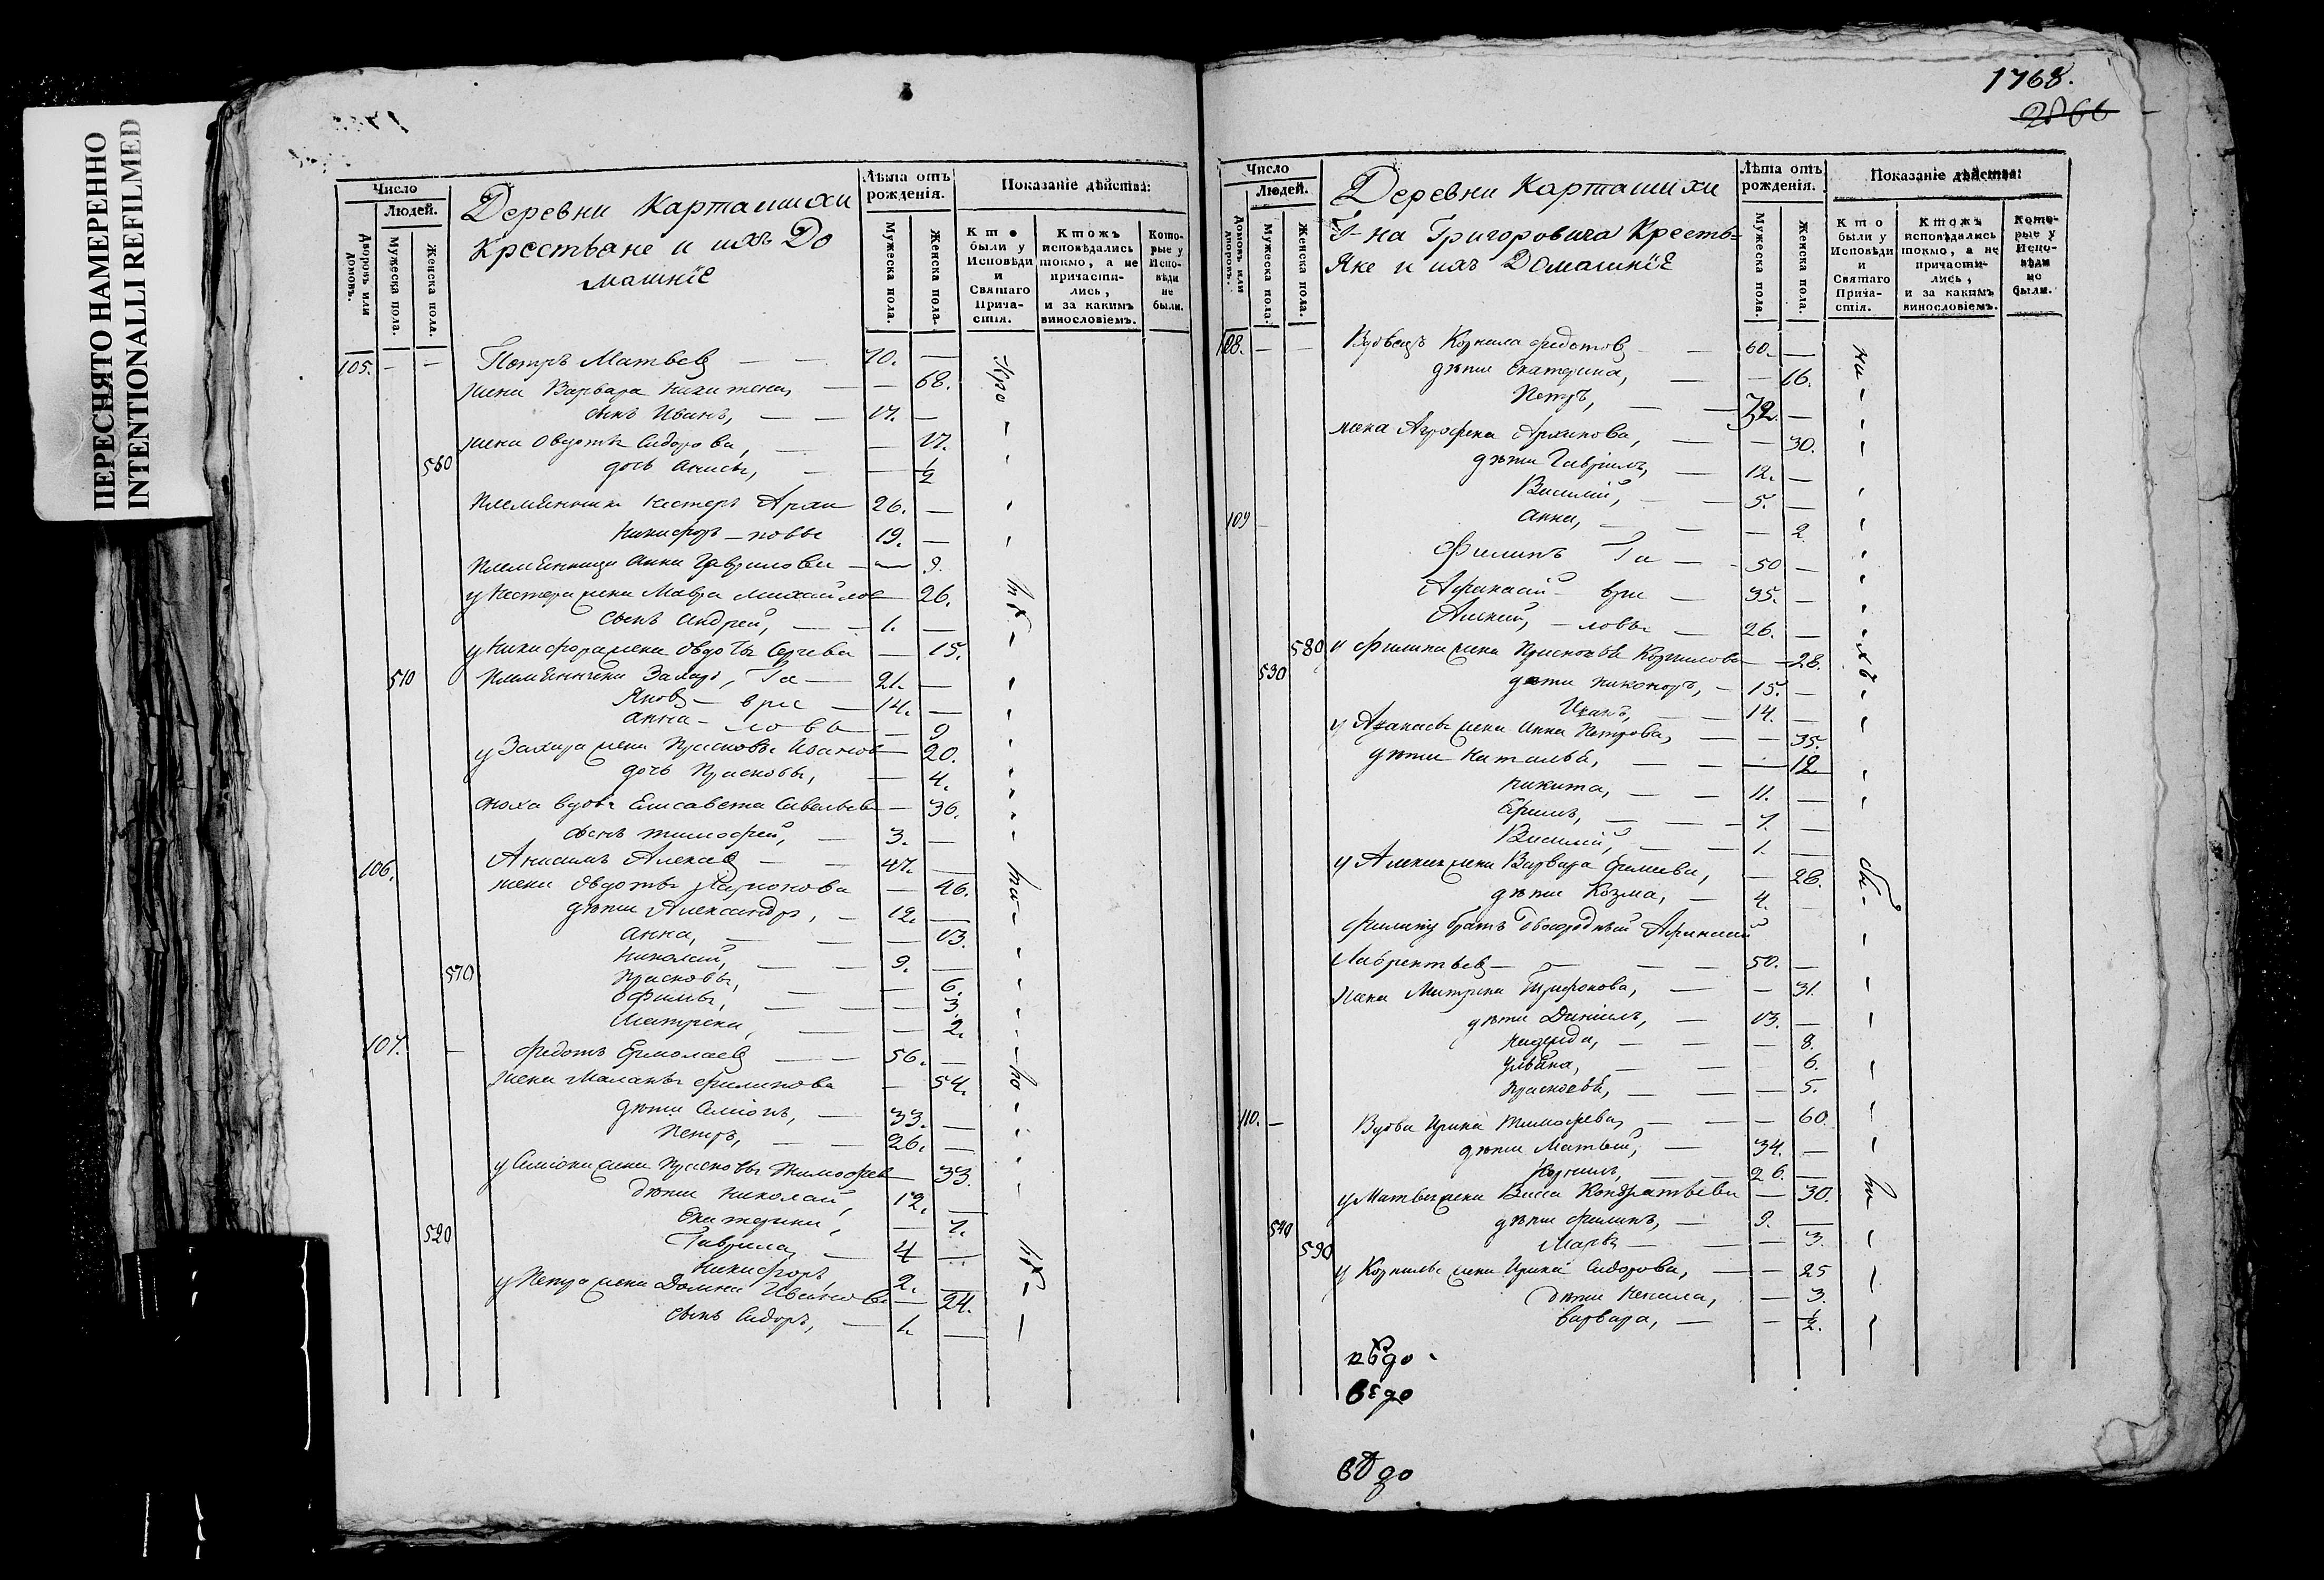 ПЕРЕСНЯТО НАМЕРЕННО
INTENTIONALLI REFILMED
Число
Людей.
Дворовъ или домовъ.
Мужеска пола.
Женска пола.
Деревни Карташихи
Крестьяне и ихъ До
машніе
Лѣта отъ рожденія.
Мужеска пола.
Женска пола.
Показаніе дѣйства:
Кто были у Исповѣди и Святаго Причастія.
Ктожъ исповѣдались токмо, а не причастились, и за какимъ винословіемъ.
Которые у Исповѣди не были.
105. — — Петръ Матвѣевъ — — 70. —
жена Варвара Никитина, — — 68.
сынъ Иванъ, — — 17. —
жена Овдотья Сидорова, — — 17.
560 дочь Анисья, — — 1/2
племянники Нестеръ Архи 26. —
Никифоръ — повы 19. —
племянница Анна Гаврилова — — 9.
у Нестера жена Мавра Михайлов — 26.
сынъ Андрей, — — 1. —
у Никифора жена Овдотья Сергеева — 15.
510 племянники Захаръ, Га — 21. —
Яковъ — врие — 14. —
Анна — ловы — 9
у Захара жена Прасковья Иванов — 20.
дочь Прасковья, — 4.
сноха вдова Елисавета Савельева — 36.
сынъ Тимофей, — 3. —
106. Анисимъ Алексѣевъ — — 47. —
жена Овдотья Ларионова — 46.
дѣти Александръ, — 12. —
Анна, — — — 13.
Николай, — — 9. —
570 Прасковья, — — 6.
Офимья, — — 3.
Матрена, — — 2.
107. — Федотъ Ермолаевъ — — 56. —
жена Маланья Филипова — 54.
дѣти Симіонъ, — 33. —
Петръ, — — 26. —
у Симіона жена Прасковья Тимофеев — 33.
дѣти Николай, 12. —
Екатерина, — 7.
520 Гаврила, — 4 —
Никифоръ, 2. —
у Петра жена Домна Иванова — 24.
сынъ Сидоръ, — 1. —
1768.
2866
Число
Людей.
Домовъ или дворовъ.
Мужеска пола.
Женска пола.
Деревни Карташихи
Г-на Григоровича Кресть=
яне и ихъ Домашніе
Лѣта отъ рожденія.
Мужеска пола.
Женска пола.
Показаніе дѣйства:
Кто были у Исповѣди и Святаго Причастія.
Ктожъ исповѣдались токмо, а не причастились, и за какимъ винословіемъ.
Которые у Исповѣди не были.
108. — — Вдовецъ Корнила Федотовъ — — 60. —
дѣти Екатерина, — — 16.
Петръ, — — 32. —
жена Агрофена Архипова, — — 30.
дѣти Гавріилъ, — 12. —
Василій, — — 5. —
109 — Анна, — — — 2.
Филипъ Га — — 50 —
Афанасій — врии — 35. —
Алексѣй, — ловы — 26. —
580 у Филипа жена Прасковья Корнилова — — 28.
530 дѣти Никоноръ, — 15. —
Иванъ, — 14. —
у Афанасья жена Анна Петрова, — — 35.
дѣти Наталья, — — — 12
Никита, — — 11. —
Ефимъ, — — — 7. —
Василій, — — 1. —
у Алексѣя жена Варвара Филиева, — 28.
дѣти Козма, — 4. —
Филипу братъ двоюродный Афанасій
Лаврентьевъ — — — — 50. —
жена Матрена Трифонова, — — 31.
дѣти Даніилъ, — 13. —
Надежда, — — — 8.
Ульяна, — — 6.
Прасковья, — — — 5.
110. — Вдова Ирина Тимофеева, — — — 60.
дѣти Матвѣй, — 34. —
Корнилъ, — — 26. —
у Матвѣя жена Васса Кондратьева — 30.
540 дѣти Филипъ, — 9. —
590 Марѳа — — — 3.
у Корнилы жена Ирина Сидорова, — — 25
дѣти Ненила, — 3.
Варвара, — — 1/2.